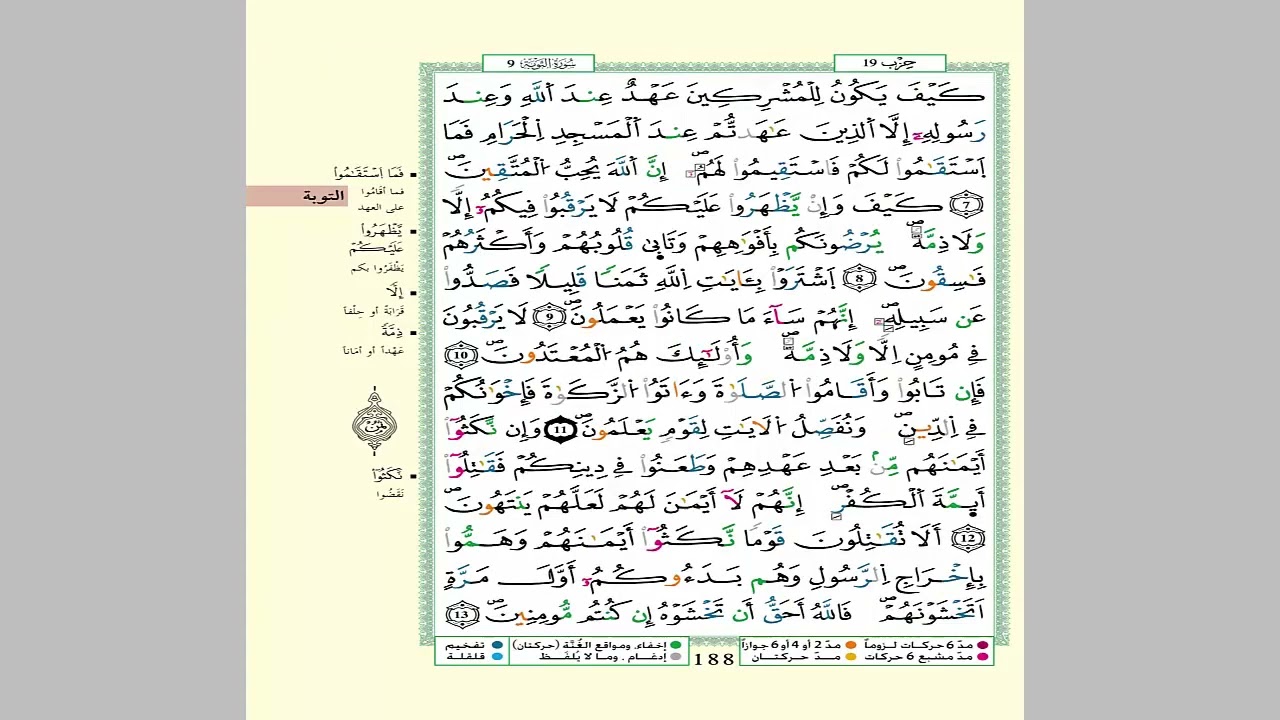 حِزْب 19
سُورَةُ التَّوْبَةِ 9
كَيْفَ يَكُونُ لِلْمُشْرِكِينَ عَهْدٌ عِندَ اَ۬للَّهِ وَعِندَ
رَسُولِهِۦٓ إِلَّا اَ۬لذِينَ عَٰهَدتُّمْ عِندَ اَ۬لْمَسْجِدِ اِ۬لْحَرَامِ فَمَا
اَ۪سْتَقَٰمُواْ لَكُمْ فَاسْتَقِيمُواْ لَهُمُۥٓۖ إِنَّ اَ۬للَّهَ يُحِبُّ اُ۬لْمُتَّقِينَۖ
7 كَيْفَ وَإِنْ يَّظْهَرُواْ عَلَيْكُمْ لَا يَرْقُبُواْ فِيكُمُۥٓ إِلّاٗ
وَلَا ذِمَّةٗۖ يُرْضُونَكُم بِأَفْوَٰهِهِمْ وَتَأْب۪يٰ قُلُوبُهُمْ وَأَكْثَرُهُمْ
فَٰسِقُونَۖ 8 اَ۪شْتَرَوْاْ بِـَٔايَٰتِ اِ۬للَّهِ ثَمَناٗ قَلِيلاٗ فَصَدُّواْ
عَن سَبِيلِهِۦٓۖ إِنَّهُمْ سَآءَ مَا كَانُواْ يَعْمَلُونَۖ 9 لَا يَرْقُبُونَ
فِے مُومِنٍ اِلّاٗ وَلَا ذِمَّةٗۖ وَأُوْلَٰٓئِكَ هُمُ اُ۬لْمُعْتَدُونَۖ 10
فَإِن تَابُواْ وَأَقَامُواْ اُ۬لصَّلَوٰةَ وَءَاتَوُاْ اُ۬لزَّكَوٰةَ فَإِخْوَٰنُكُمْ
فِے اِ۬لدِّينِۖ وَنُفَصِّلُ اُ۬لَايَٰتِ لِقَوْمٖ يَعْلَمُونَۖ 11 وَإِن نَّكَثُوٓاْ
أَيْمَٰنَهُم مِّنۢ بَعْدِ عَهْدِهِمْ وَطَعَنُواْ فِے دِينِكُمْ فَقَٰتِلُوٓاْ
أَيِمَّةَ اَ۬لْكُفْرِۖ إِنَّهُمْ لَآ أَيْمَٰنَ لَهُمْ لَعَلَّهُمْ يَنتَهُونَۖ
12 أَلَا تُقَٰتِلُونَ قَوْماٗ نَّكَثُوٓاْ أَيْمَٰنَهُمْ وَهَمُّواْ
بِإِخْرَاجِ اِ۬لرَّسُولِ وَهُم بَدَءُوكُمُۥٓ أَوَّلَ مَرَّةٍ
اَتَخْشَوْنَهُمْۖ فَاللَّهُ أَحَقُّ أَن تَخْشَوْهُ إِن كُنتُم مُّومِنِينَۖ 13
فَمَا اَ۪سْتَقَٰمُواْ
فما أقاموا
على العهد
التوبة
يَّظْهَرُواْ
عَلَيْكُمْ
يَظْفَرُوا بكم
إِلّاٗ
قَرَابَةً أو حِلْفاً
ذِمَّةٗ
عَهْداً أو أمَاناً
نَّكَثُوٓاْ
نَقَضُوا
مدّ 6 حركات لـزوماً
مدّ 2 أو 4 أو 6 جوازاً
إخفاء، ومواقع الغُنَّة (حركتان)
تفخيم
مدّ مشبع 6 حركات
مــدّ حـركتــان
إدغـام ، ومـا لا يُلفَـظ
قلقلة
188